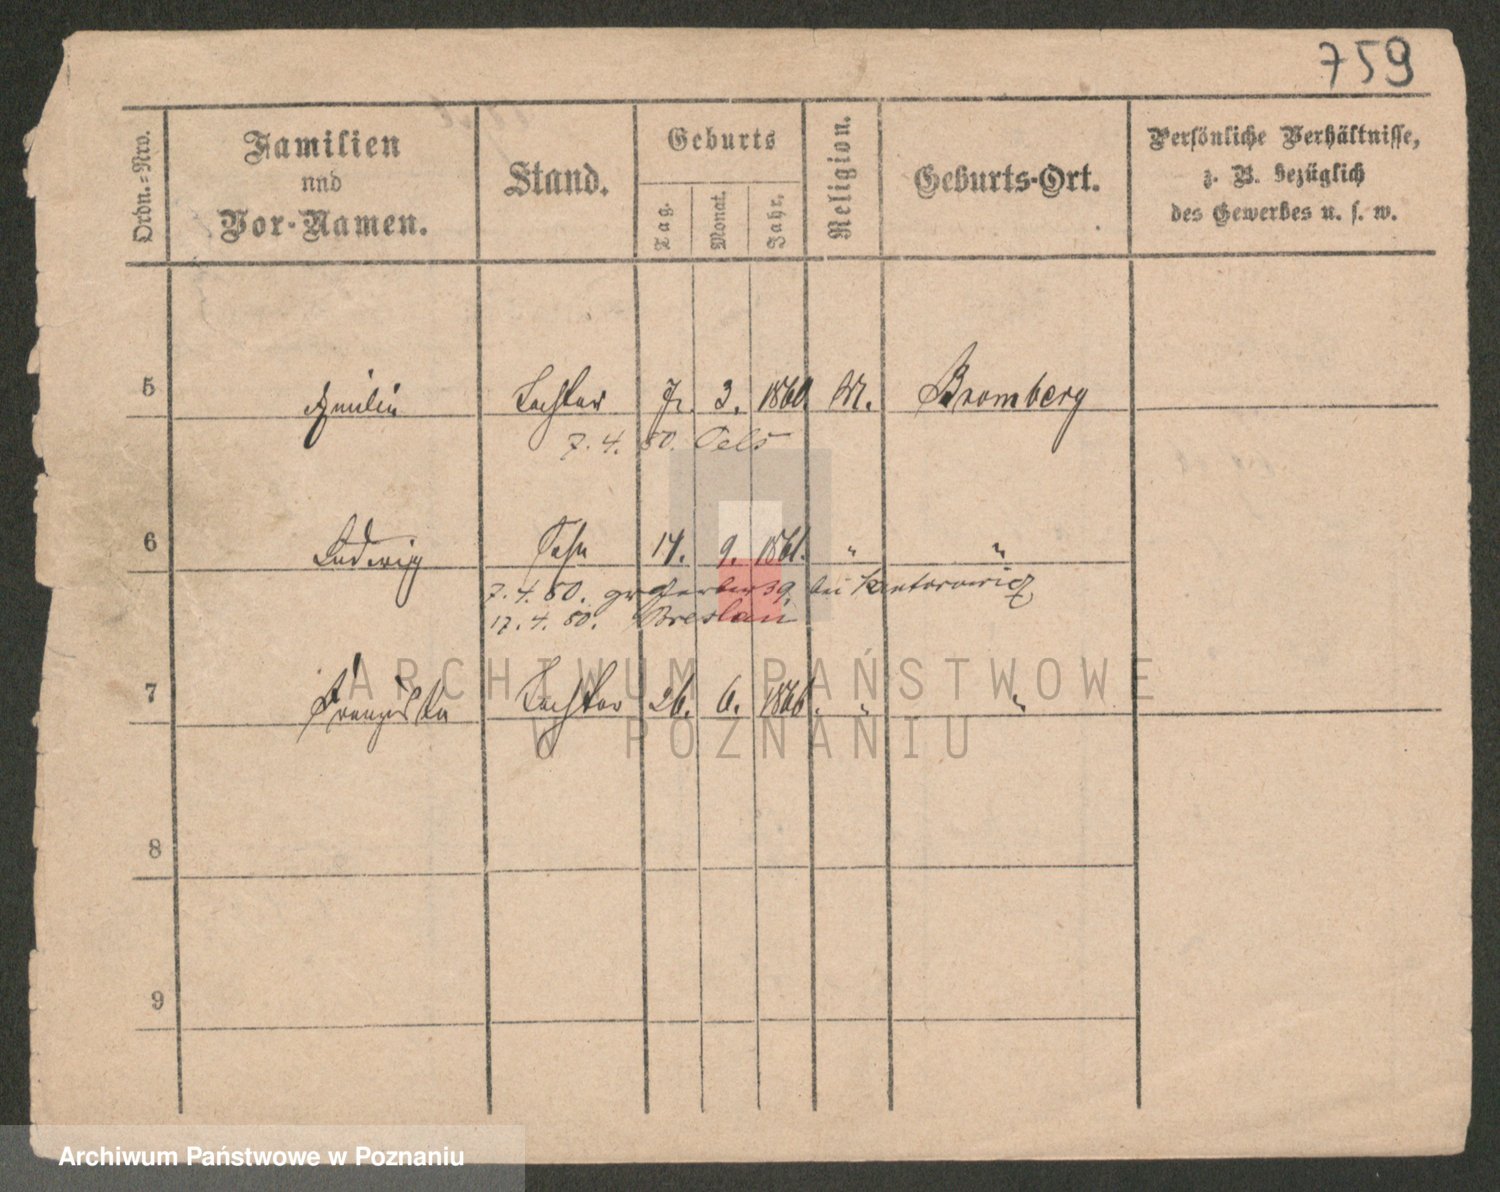 759
Ordn.-Nro.
Familien
und
Vor-Namen.
Stand.
Geburts
Tag.
Monat.
Jahr.
Religion.
Geburts-Ort.
Persönliche Verhältnisse,
z. B. bezüglich
des Gewerbes u. s. w.
5 Emilie Tochter 3. 1860. M. Bromberg
7. 4. 80. Oels
6 Ludwig Sohn 14. 9. 1861. " "
7. 4. 80. Gr. Gerber 39. bei Kantorowicz
17. 4. 80. Breslau
7 Franziska Tochter 26. 6. 1866. " "
8
9
ARCHIWUM PAŃSTWOWE
W POZNANIU
Archiwum Państwowe w Poznaniu